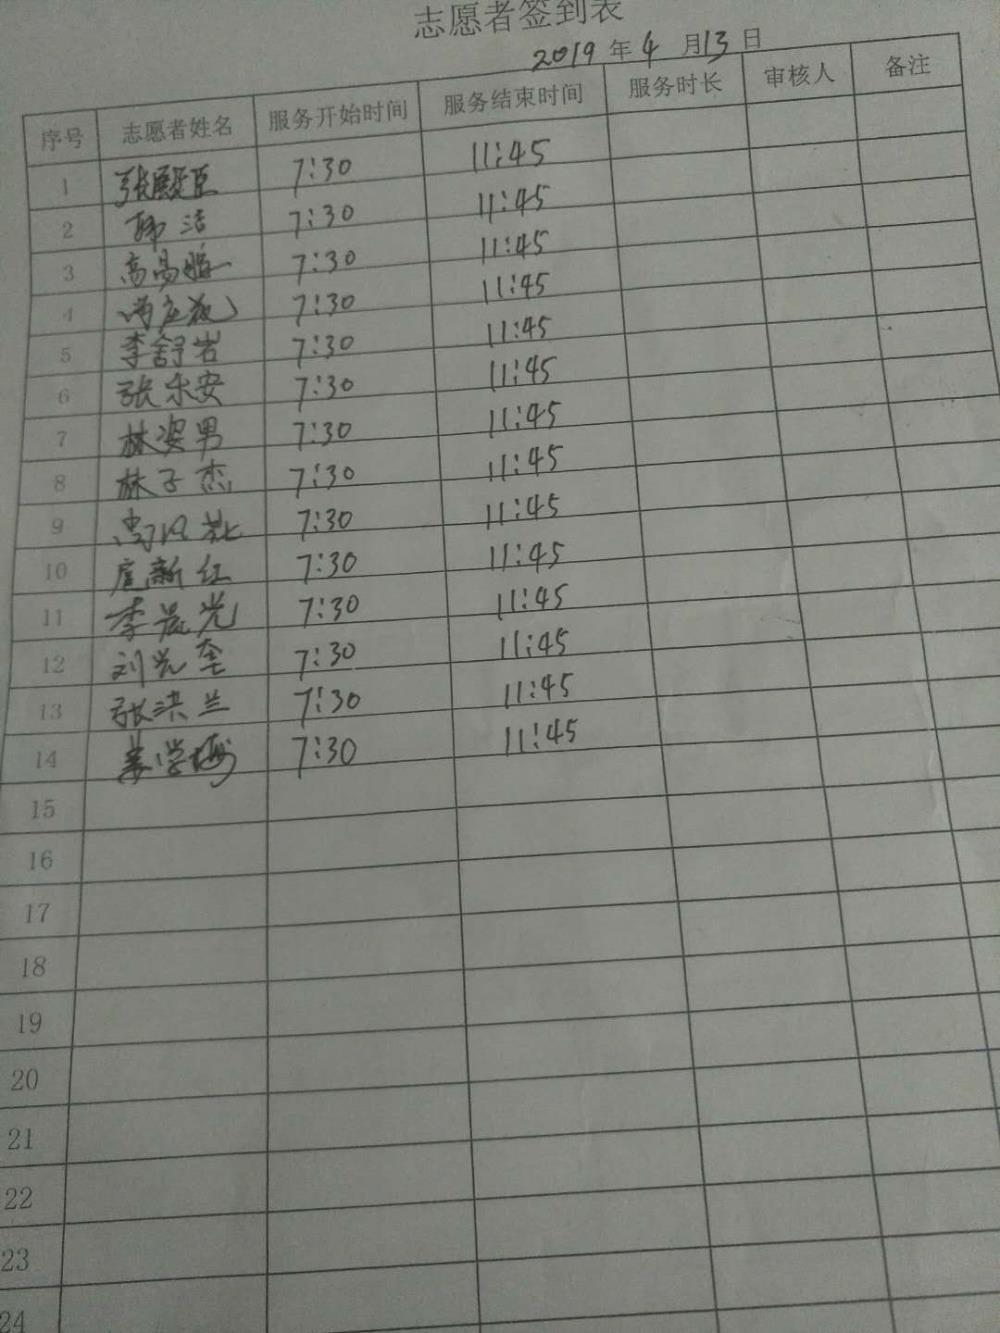 志愿者签到表
2019年4月13日
序号 志愿者姓名 服务开始时间 服务结束时间 服务时长 审核人 备注
1 张殿臣 7:30 11:45
2 韩洁 7:30 11:45
3 高 7:30 11:45
4 7:30 11:45
5 李舒岩 7:30 11:45
6 张乐安 7:30 11:45
7 林姿男 7:30 11:45
8 林子杰 7:30 11:45
9 7:30 11:45
10 扈新红 7:30 11:45
11 李晨光 7:30 11:45
12 刘光奎 7:30 11:45
13 张洪兰 7:30 11:45
14 姜学梅 7:30 11:45
15
16
17
18
19
20
21
22
23
24